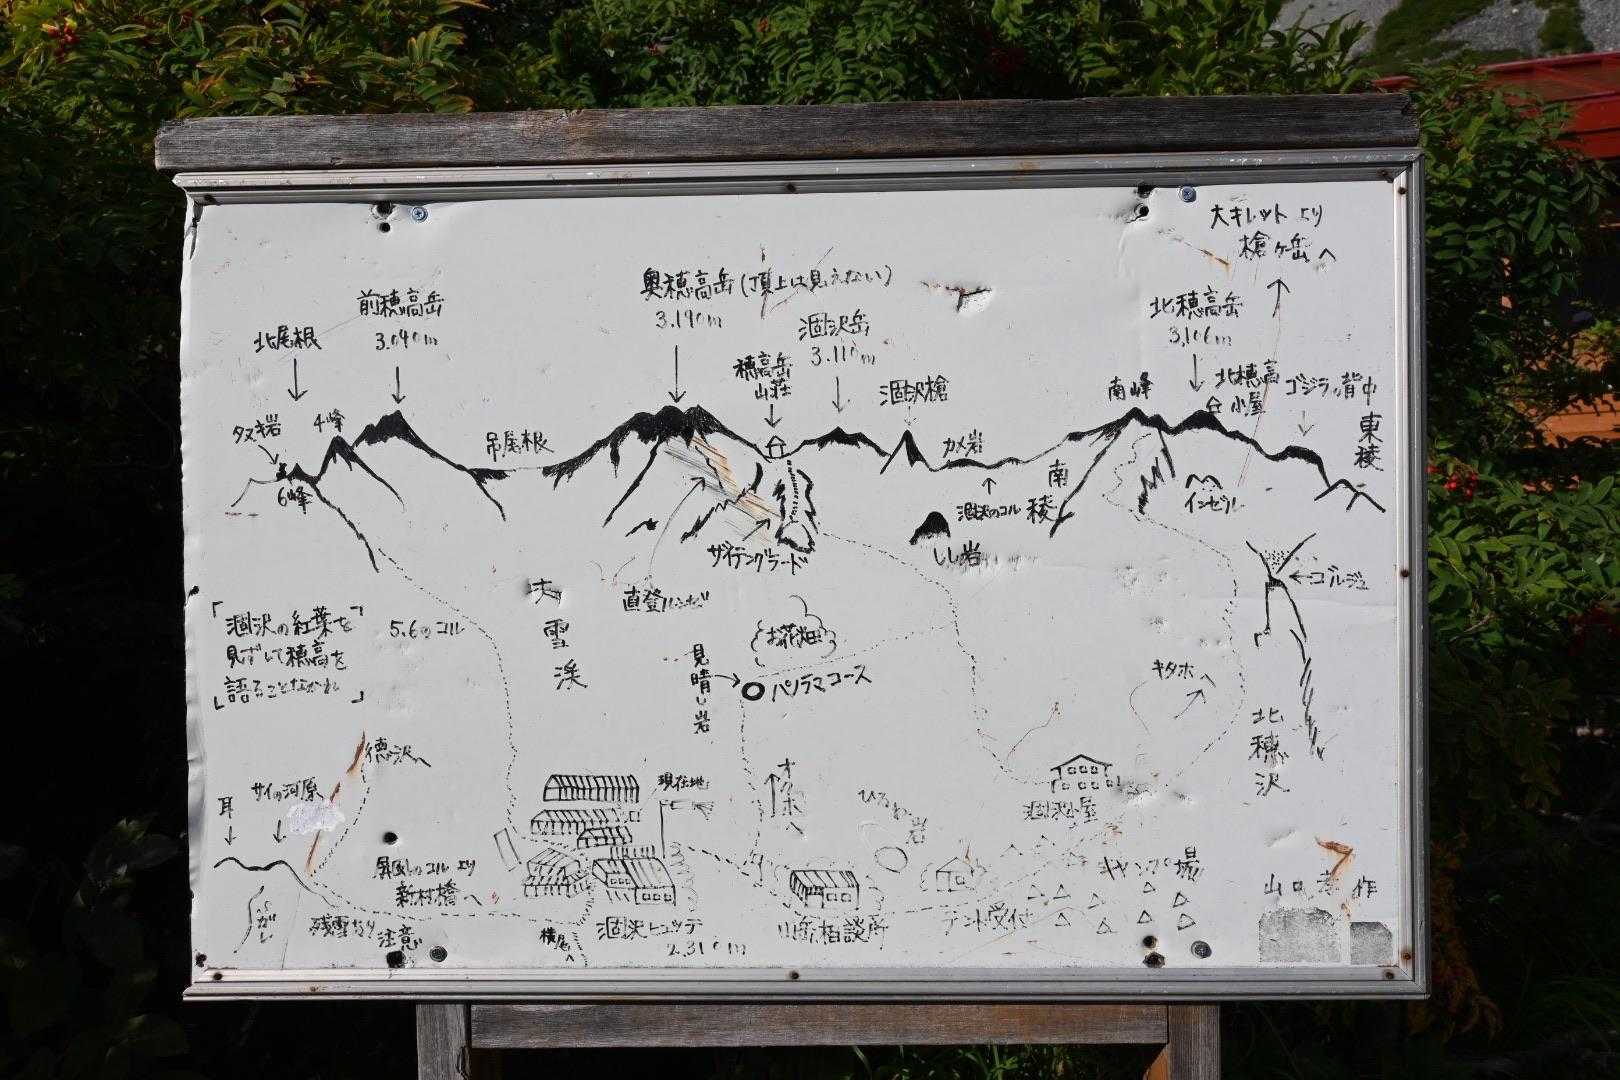 大キレットより
槍ヶ岳へ
奥穂高岳(頂上は見えない)
3.190m
前穂高岳
3.040m
北尾根
涸沢岳
3.110m
北穂高岳
3,106m
穂高岳
山荘
涸沢槍
南峰
北穂高
小屋
ゴジラの背中
東稜
タヌキ岩
4峰
6峰
吊尾根
カメ岩
涸沢のコル
南稜
インゼル
しし岩
ザイテングラード
直登ルンゼ
ゴルジュ
「涸沢の紅葉を
見ずして穂高を
語ることなかれ」
5.6のコル
大雪渓
お花畑
見晴し岩
パノラマコース
キタホへ
北穂沢
徳沢へ
サイの河原
耳
現在地
オクホへ
涸沢小屋
屏風のコルより
新村橋へ
ガレ
残雪あり
注意
横尾へ
涸沢ヒュッテ
2.310m
山岳相談所
テント受付
キャンプ場
作